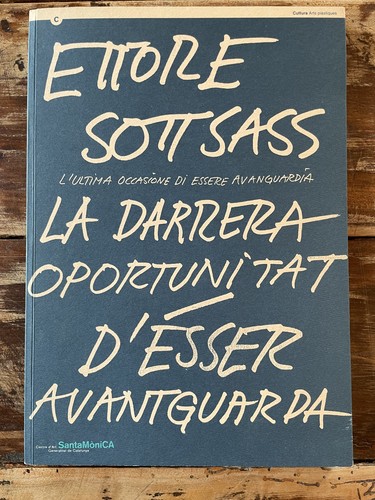 C
Cultura Arts plàstiques
ETTORE
SOTTSASS
L'ULTIMA OCCASIONE DI ESSERE AVANGUARDIA
LA DARRERA
OPORTUNITAT
D'ÉSSER
AVANTGUARDA
Centre d'Art SantaMònicA
Generalitat de Catalunya